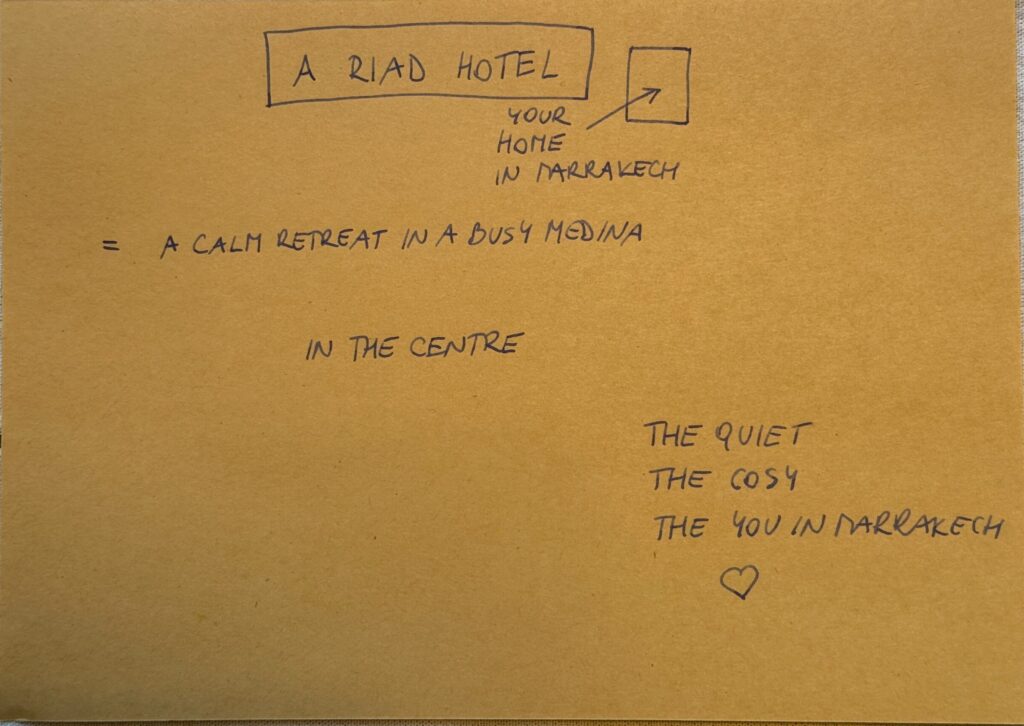 A RIAD HOTEL
YOUR
HOME
IN MARRAKECH
= A CALM RETREAT IN A BUSY MEDINA
IN THE CENTRE
THE QUIET
THE COSY
THE YOU IN MARRAKECH